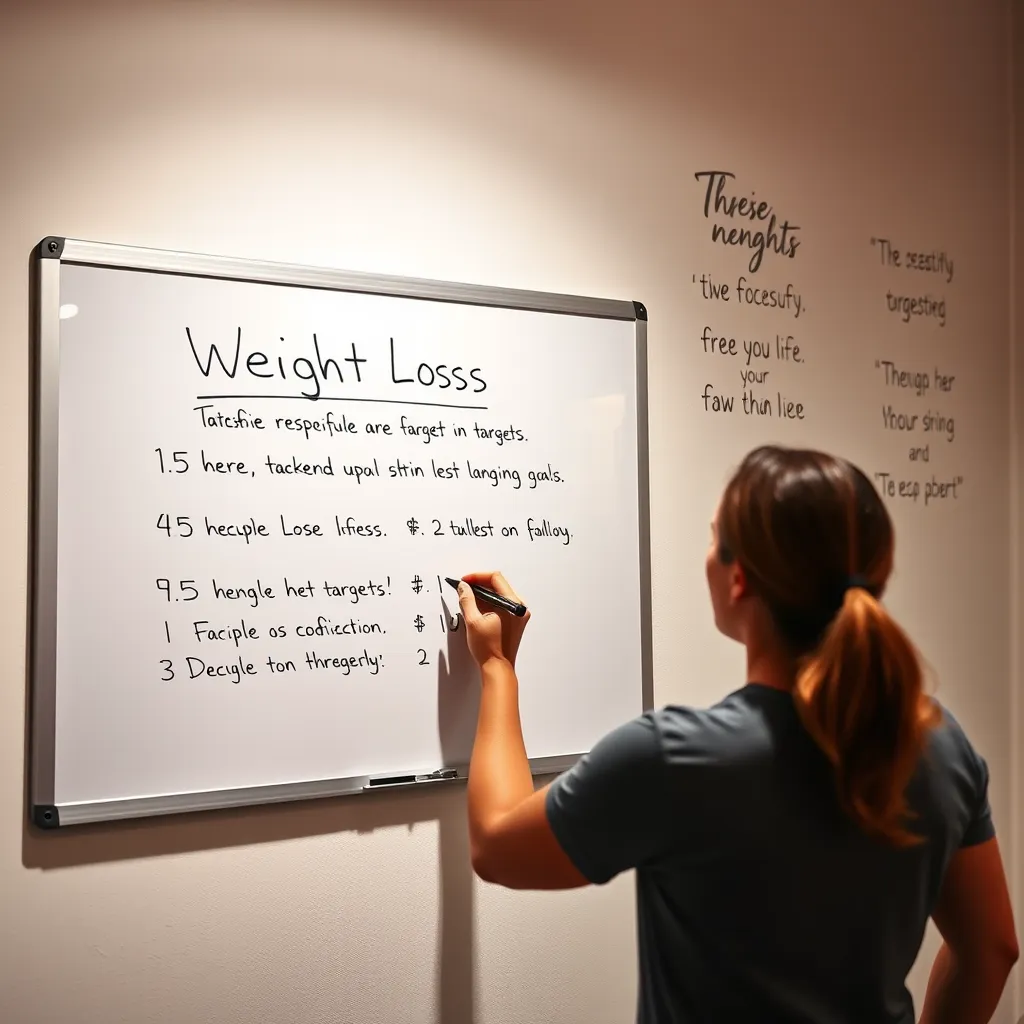 Weight Losss
Tatcfie respeifule are farget in targets.
1.5 here, tackend upal shin lest langing goals.
45 hecuple Lose lifess. $. 2 tullest on falloy.
9.5 hengle het targets! $. 1
1 Faciple os codiiection. $ 1
3 Decigle ton thregerly! 2
Threise
nenghts
'tive focesufy.
free you life.
your
faw thin liee
"The
turgestieg
"Theugp her
Yhour shring
and
"Te esp pbert"